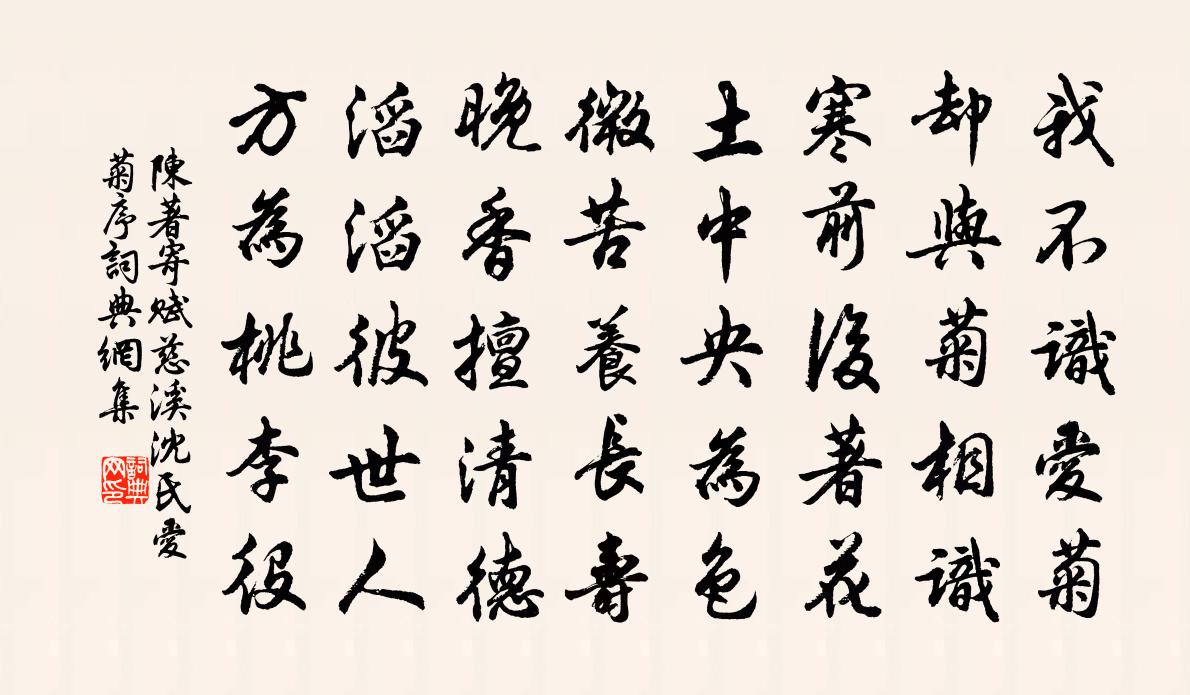 我不識愛菊
却與菊相識
寒前後著花
土中央為色
微苦養長壽
晚香擅清德
滔滔彼世人
方為桃李役
陳著寄賦慈溪沈氏愛
菊序詞典網集
詞典
网印